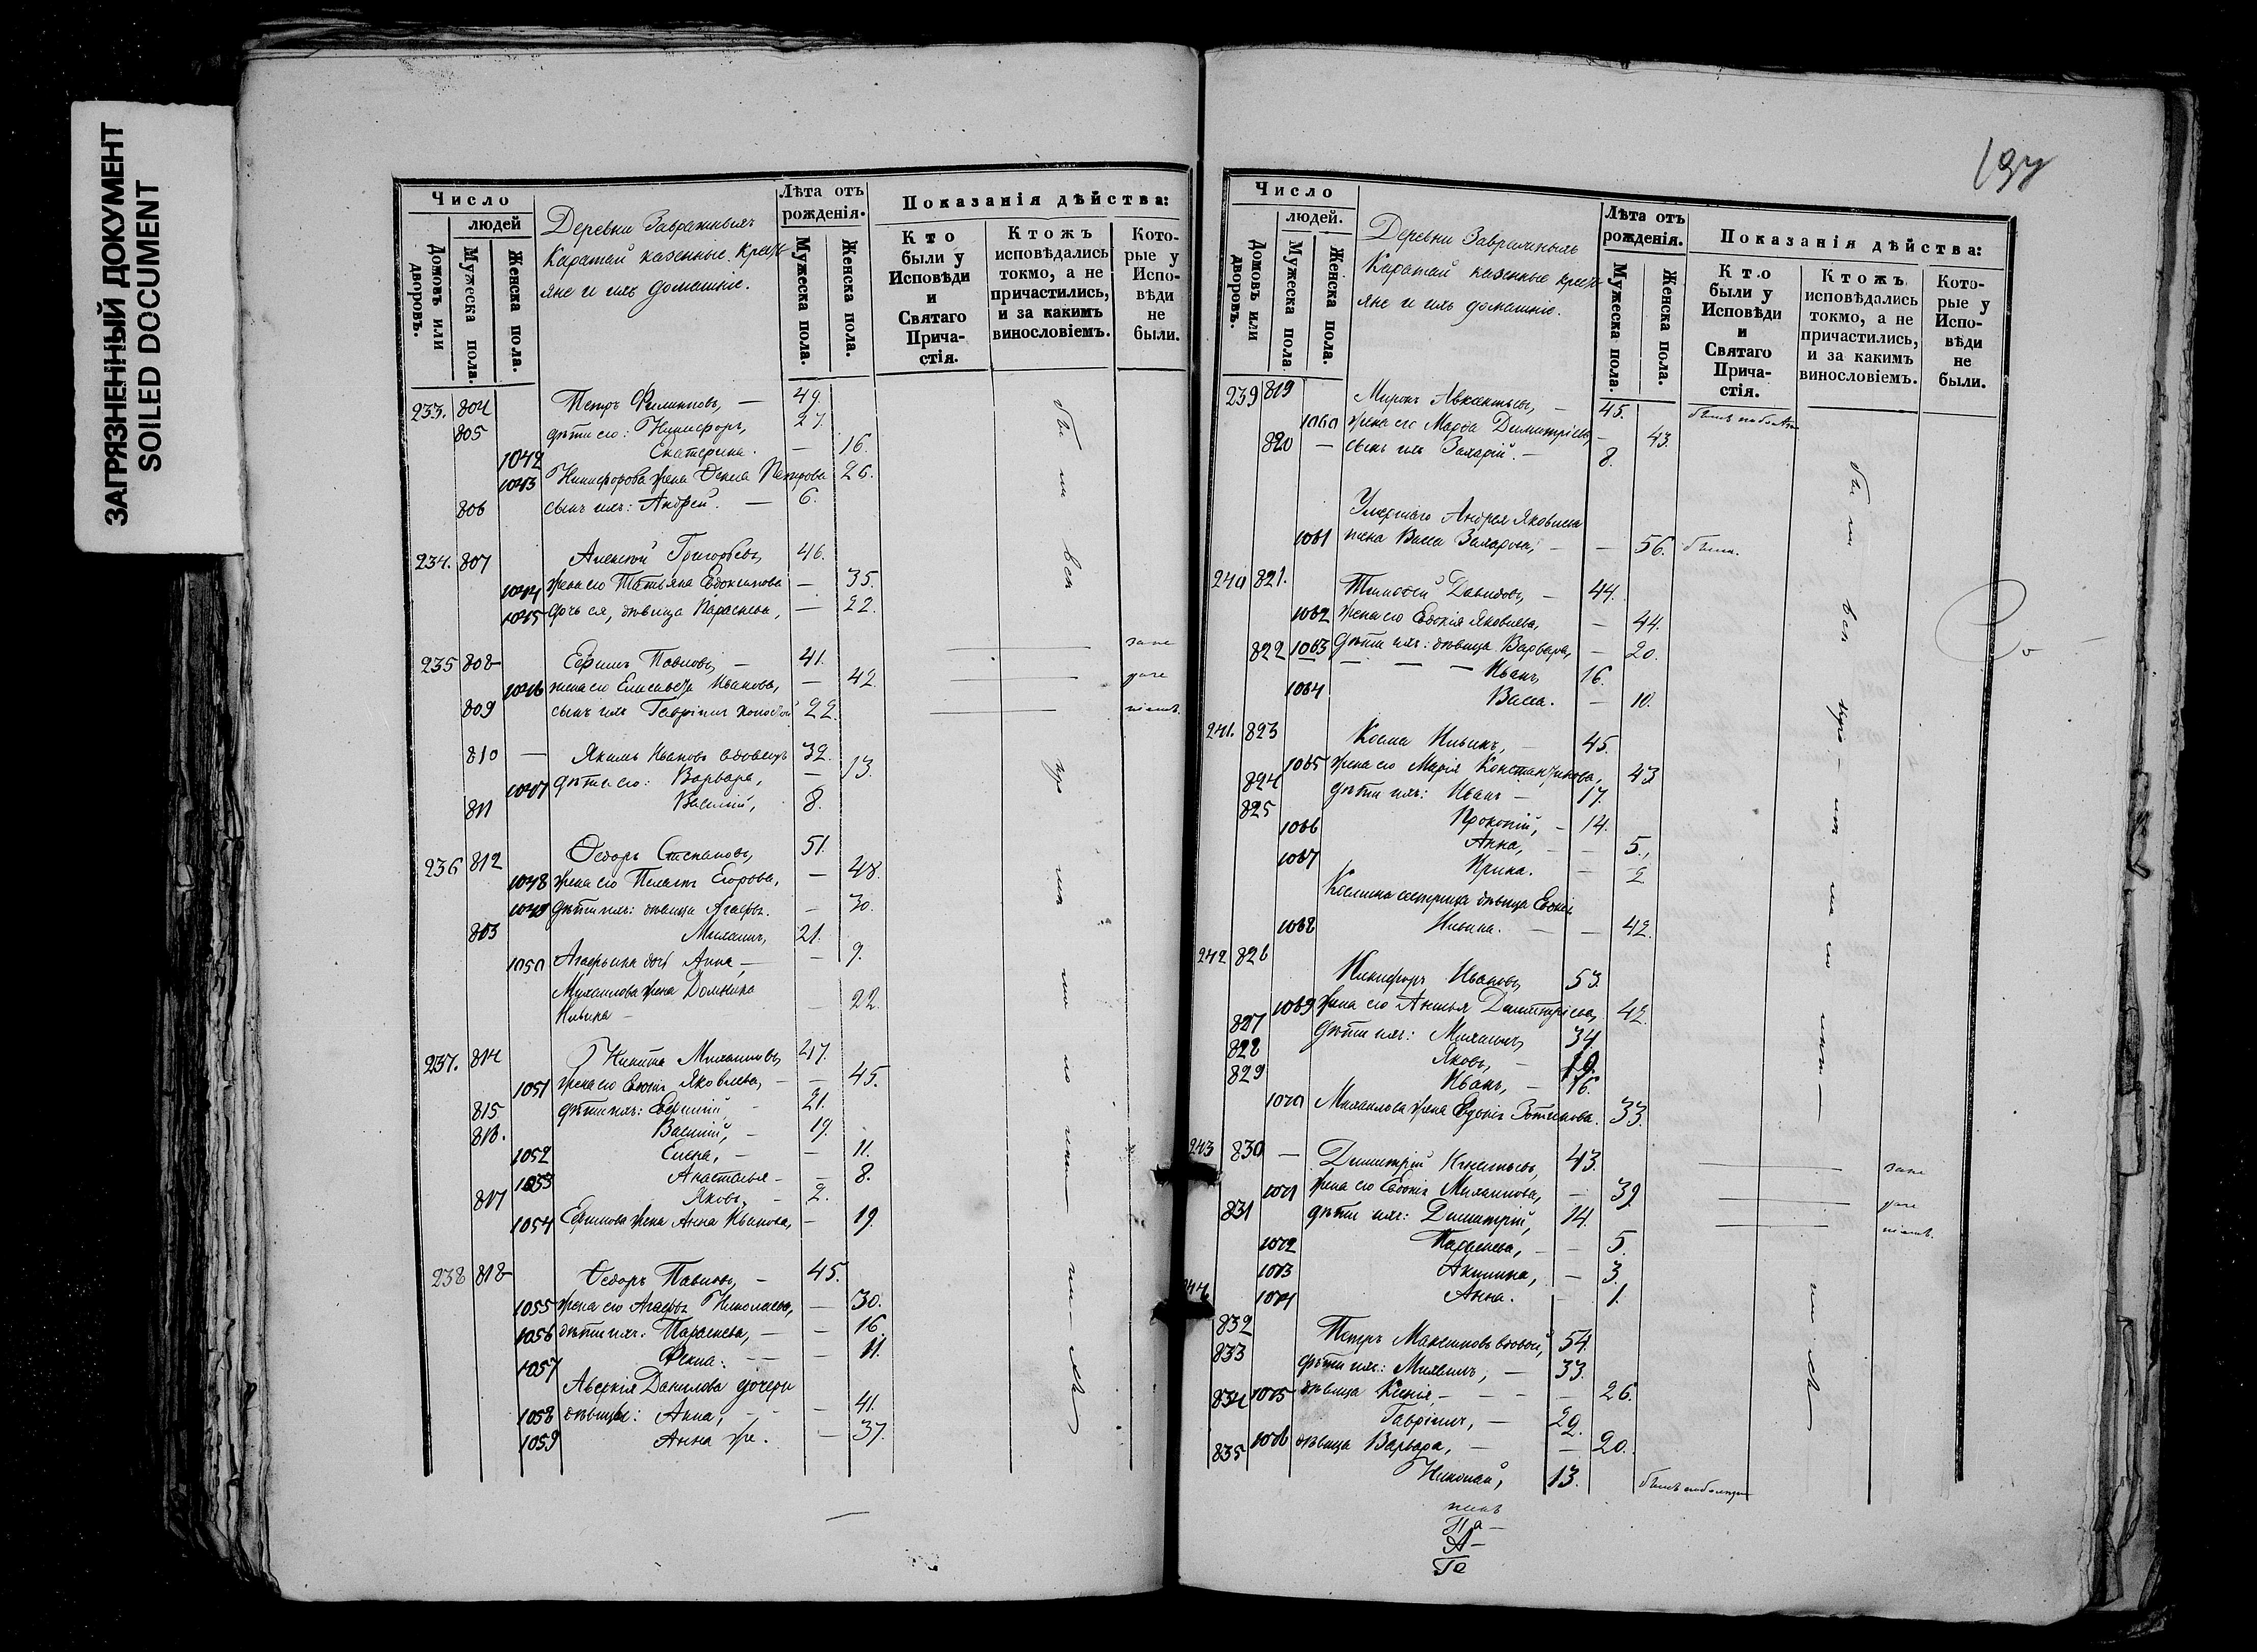 ЗАГРЯЗНЕННЫЙ ДОКУМЕНТ
SOILED DOCUMENT
Число
людей
Домовъ или дворовъ.
Мужеска пола.
Женска пола.
Деревни Завражныхъ
Каратай казенные кресть
яне и ихъ домашніе.
Лѣта отъ рожденія.
Мужеска пола.
Женска пола.
Показанія дѣйства:
Кто были у Исповѣди и Святаго Причастія.
Ктожъ исповѣдались токмо, а не причастились, и за какимъ винословіемъ.
Которые у Исповѣди не были.
233. 804 Петръ Филипповъ, — 49.
805 дѣти его: Никифоръ, 27.
1042 Екатерина. — 16.
1043 Никифорова жена Фекла Петрова 26.
806 сынъ ихъ: Андрей. — 6.
234. 807 Алексей Григорьевъ, 46.
1044 жена его Татьяна Евдокимова — 35.
1045 дочь ея, дѣвица Параскева, — 22.
235 808 Ефимъ Павловъ, — 41.
1046 жена его Елисавета Иванова, — 42
809 сынъ ихъ Гавріилъ холостой 22.
810 — Якимъ Ивановъ вдовецъ 32.
1047 дѣти его: Варвара, — 13.
811 Василій, 8.
236 812 Ѳедоръ Степановъ, 51.
1048 жена его Пелагія Егорова, — 48.
1049 дѣти ихъ: дѣвица Агафья. — 30.
803 Михаилъ, 21.
1050 Агафьина дочь Анна, — 9.
Михаилова жена Домника
Ильина — 22.
237. 814 Никита Михаиловъ, 47.
1051 жена его Евдокія Яковлева, — 45.
815 дѣти ихъ: Ефимій, — 21.
816. Василій, — 19.
1052 Елена, — — 11.
1053 Анастасья — — 8.
817 Яковъ, — 2.
1054 Ефимова жена Анна Иванова, — 19.
238 818 Ѳедоръ Павловъ, — 45.
1055 жена его Агафья Николаева, — 30.
1056 дѣти ихъ: Параскева, — — 16
1057 Фекла. — — 11.
Аверкія Данилова дочери
1058 дѣвицы: Анна, — — 41.
1059 Анна же. — 37.
197
Число
людей.
Домовъ или дворовъ.
Мужеска пола
Женска пола.
Деревни Завражныхъ
Каратай казенные кресть
яне и ихъ домашніе.
Лѣта отъ рожденія.
Мужеска пола.
Женска пола.
Показанія дѣйства:
Кто были у Исповѣди и Святаго Причастія.
Ктожъ исповѣдались токмо, а не причастились, и за какимъ винословіемъ.
Которые у Исповѣди не были.
239 819 Миронъ — 45.
1060 жена его Марфа Димитріева, — 43.
820 — сынъ ихъ Захарій. — 8.
Умершаго Андрея Яковлева
1061 жена Васса Захарова, — — 56.
240 821. Тимофей Давидовъ, — 44.
1062 жена его Евдокія Яковлева, — 44.
822 1063 дѣти ихъ: дѣвица Варвара, — 20.
— — — Иванъ, 16.
1064 Васса. — 10.
241. 823 Косма Ильинъ, — 45.
1065 жена его Марія Константинова, 43
824 дѣти ихъ: Иванъ — 17.
825 Прокопій, — 14.
1066 Анна, — — 5.
1067 Ирина. — 2
Космина сестрица дѣвица Евдокія
1068 Ильина. — — 42.
242 826 Никифоръ Ивановъ, 53.
1069 жена его Димитріева, 42.
827 дѣти ихъ: Михаилъ, 34.
828 Яковъ, — 19.
829 Иванъ, — 16.
1070 Михаилова жена Евдокія Зотикова. 33.
243 830 — Димитрій Игнатьевъ, 43.
1071 жена его Евдокія Михаилова, — 39.
831 дѣти ихъ: Димитрій, 14.
1072 Параскева, — — 5.
1073 Акилина, — 3.
244 1074 Анна. — 1.
832 Петръ Максимовъ вдовой, 54.
833 дѣти ихъ: Михаилъ, — 33.
834 1075 дѣвица Ксенія, — — — 26.
Гавріилъ, — 29.
835 1076 дѣвица Варвара, — — 20.
Николай, 13.